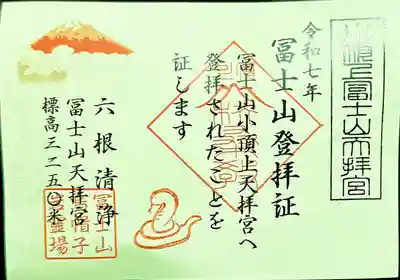 頂上富士山天拝宮
令和七年
冨士山登拝証
冨士山小頂上天拝宮へ
登拝されたことを
証します
六根清浄
冨士山天拝宮
標高三二五〇米
冨士山
烏帽子
霊場